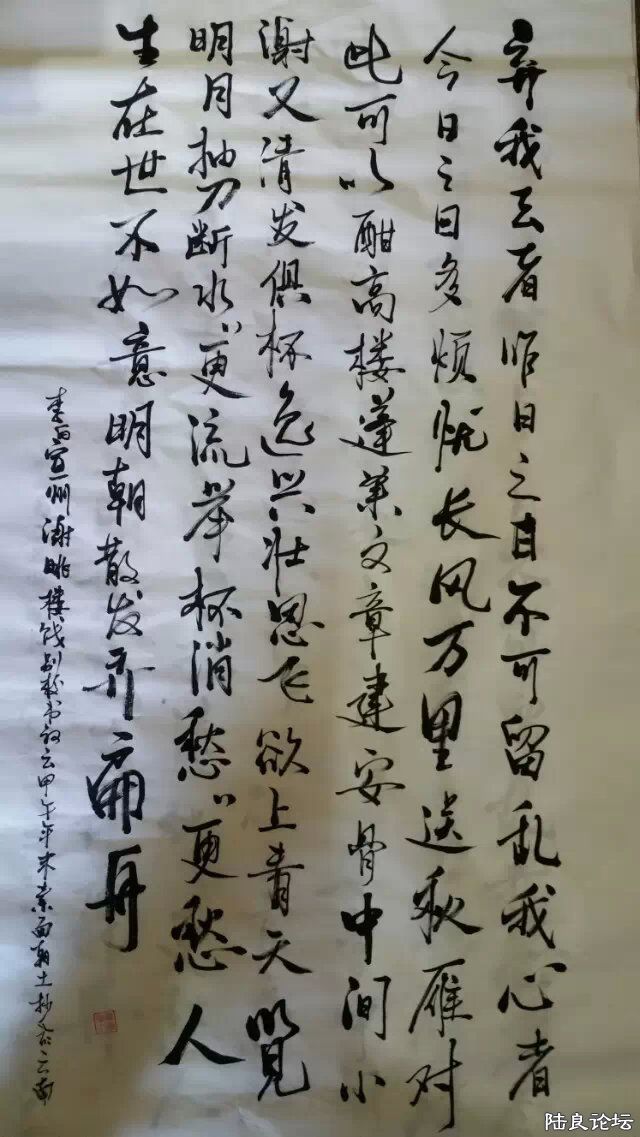 弃我去者昨日之日不可留乱我心者
今日之日多烦忧长风万里送秋雁对
此可以酣高楼蓬莱文章建安骨中间小
谢又清发俱杯逸兴壮思飞欲上青天览
明月抽刀断水〃更流举杯消愁〃更愁人
生在世不如意明朝散发弄扁舟
李白宣州谢朓楼饯别校书叔云甲午年末素面朝土抄于云南
陆良论坛